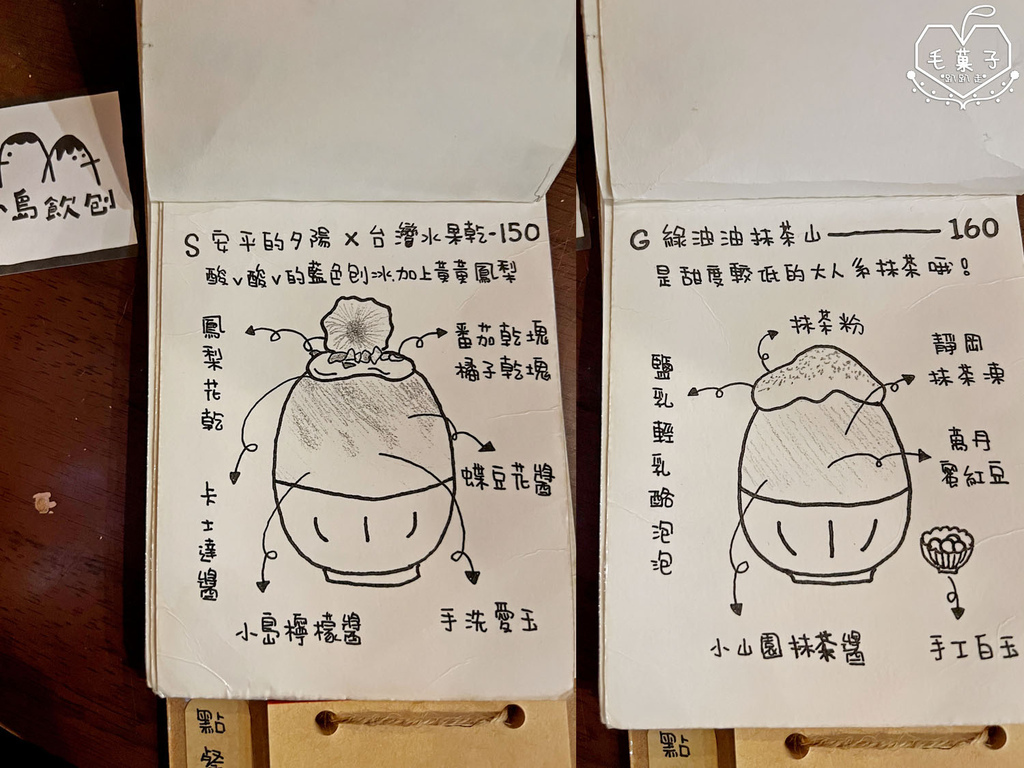 毛菓子
趴趴走
小島飲刨
S 安平的夕陽 x 台灣水果乾-150
酸v酸v的藍色刨冰加上黃黃鳳梨
鳳梨花乾
番茄乾塊
橘子乾塊
蝶豆花醬
卡士達醬
小島檸檬醬
手洗愛玉
點餐
G 綠油油抹茶山——160
是甜度較低的大人系抹茶哦!
抹茶粉
靜岡
抹茶凍
鹽乳輕乳酪泡泡
萬丹
蜜紅豆
小山園抹茶醬
手工白玉
點